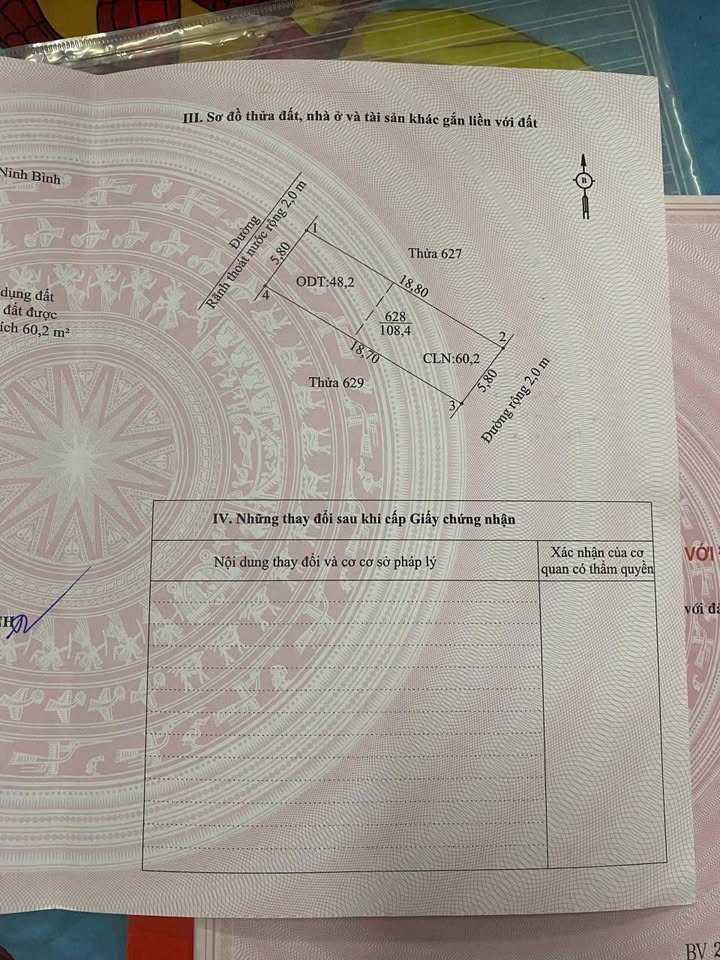 III. Sơ đồ thửa đất, nhà ở và tài sản khác gắn liền với đất
Ninh Bình
B
Đường
Rãnh thoát nước rộng 2,0 m
1
5,80
4
ODT:48,2
Thửa 627
18,80
628
108,4
18,70
CLN:60,2
2
5,80
3
Thửa 629
Đường rộng 2,0 m
dụng đất
đất được
ích 60,2 m²
IV. Những thay đổi sau khi cấp Giấy chứng nhận
Nội dung thay đổi và cơ cơ sở pháp lý
Xác nhận của cơ
quan có thẩm quyền
VỚI
với đấ
BV 2